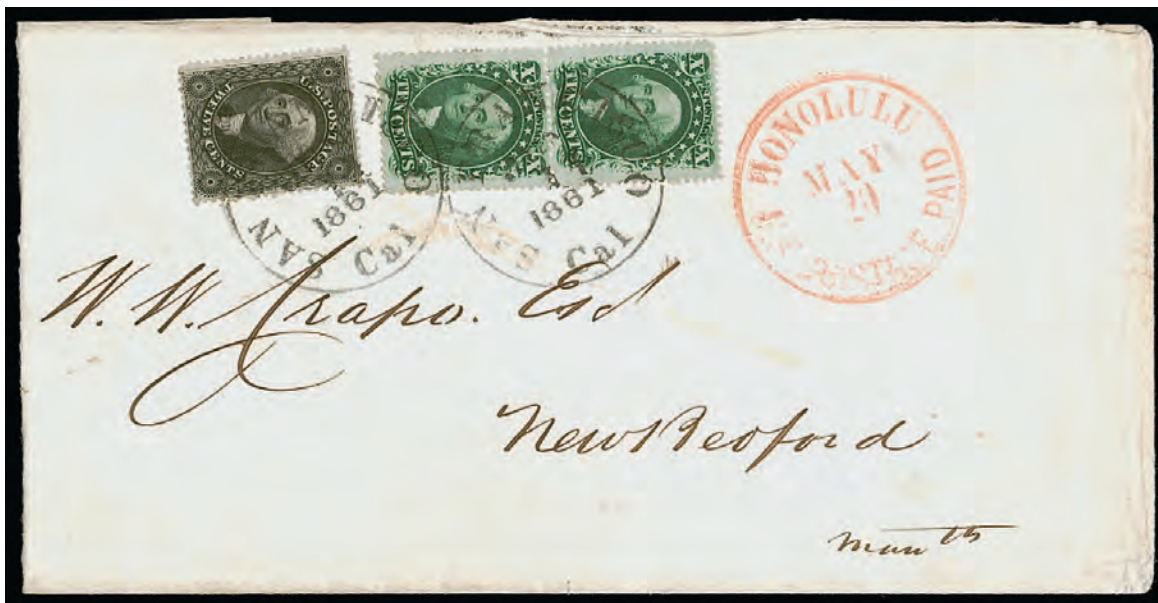 U.S. POSTAGE
TWELVE CENTS
U.S. POSTAGE
TEN CENTS
X X
U.S. POSTAGE
TEN CENTS
X X
SAN
1861
Cal
SAN
1861
Cal
HONOLULU
MAY
U.S. POSTAGE PAID
W. W. Crapo. Esq
New Bedford